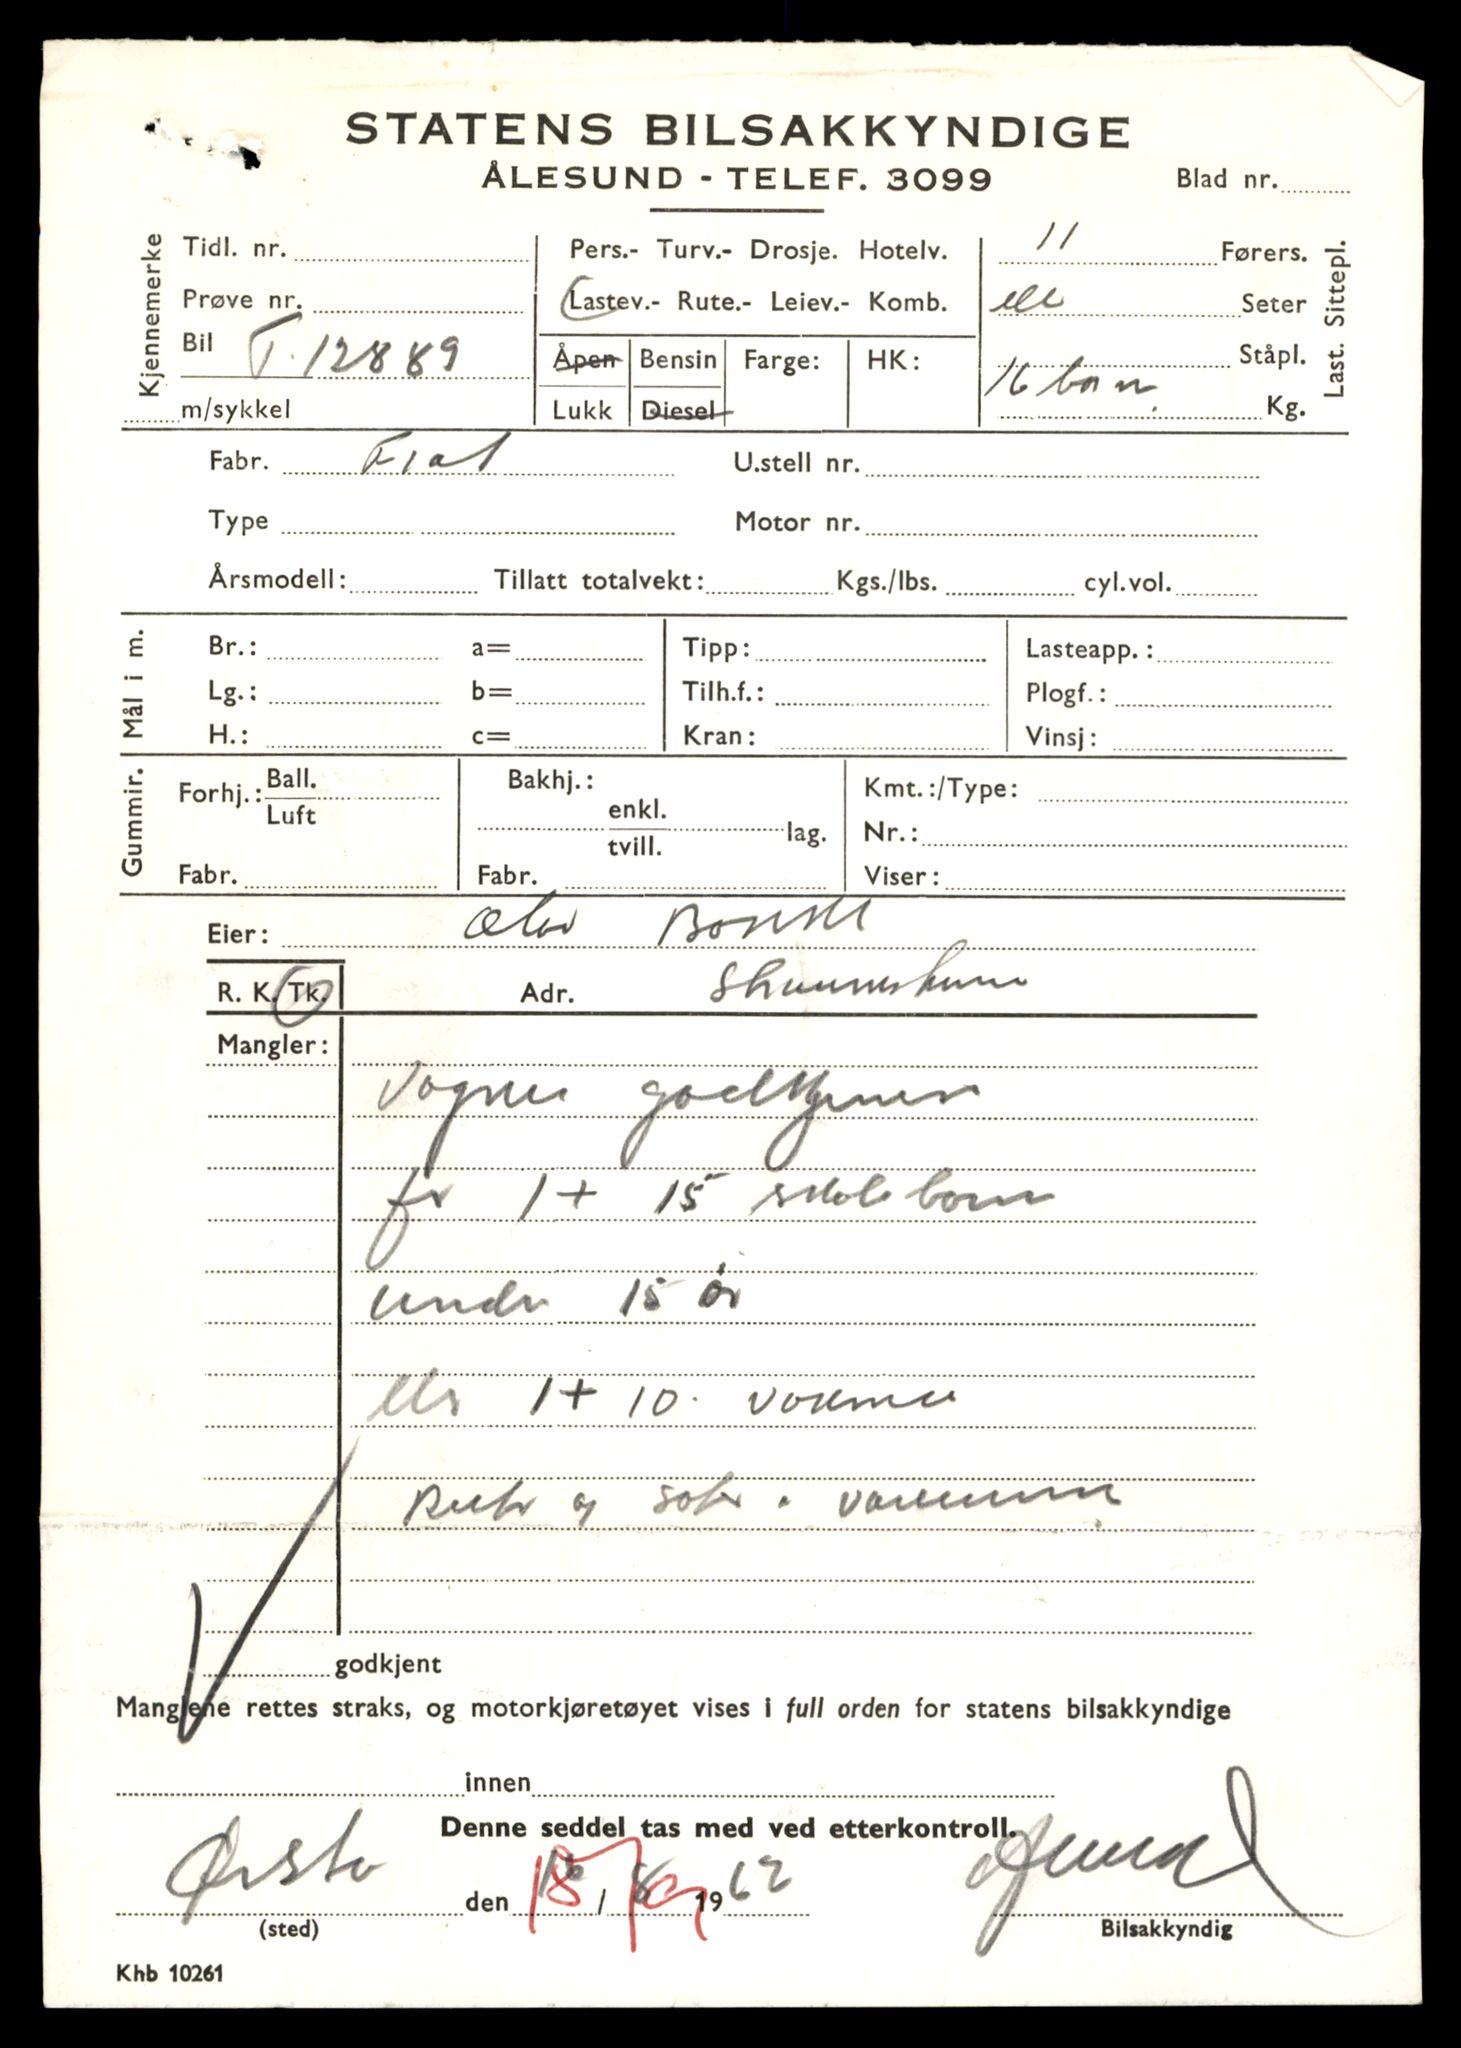 STATENS BILSAKKYNDIGE
ÅLESUND - TELEF. 3099
Blad nr.
Kjennemerke
Tidl. nr.
Prøve nr.
Bil T. 12889
m/sykkel
Pers.- Turv.- Drosje. Hotelv.
Lastev.- Rute.- Leiev.- Komb.
Åpen Bensin Farge: HK:
Lukk Diesel
11 Førers.
Seter
Ståpl.
16 barn Kg.
Last. Sittepl.
Fabr. Fiat U.stell nr.
Type Motor nr.
Årsmodell: Tillatt totalvekt: Kgs./lbs. cyl.vol.
Mål i m.
Br.: a= Tipp: Lasteapp.:
Lg.: b= Tilh.f.: Plogf.:
H.: c= Kran: Vinsj:
Gummir.
Forhj.: Ball. Luft
Bakhj.: enkl. tvill. lag.
Kmt.:/Type:
Nr.:
Fabr. Fabr. Viser:
Eier: Olav
R. K. Tk. Adr.
Mangler:
Vognen godkjennes
for 1 + 15 skolebarn
under 15 år
eller 1 + 10 voksne
og
godkjent
Manglene rettes straks, og motorkjøretøyet vises i full orden for statens bilsakkyndige
innen
Denne seddel tas med ved etterkontroll.
Ørsta den 18/9 1962
(sted) Bilsakkyndig
Khb 10261